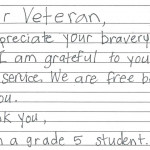 r Veteran,
preciate your bravery
I am grateful to you
service. We are free be
ou.
nk you,
m a grade 5 student.